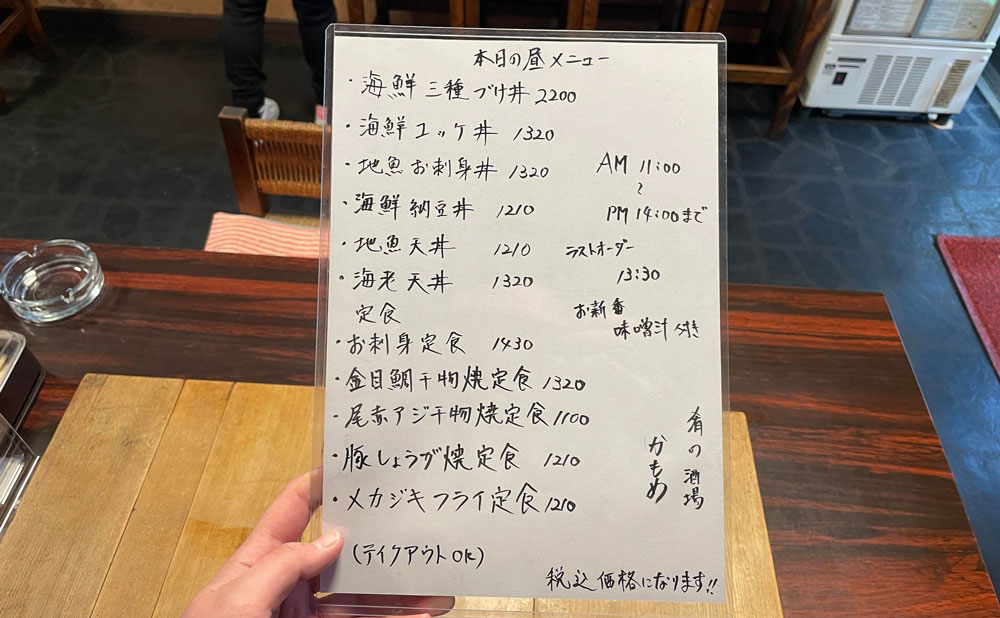 本日の昼メニュー
・海鮮三種づけ丼 2200
・海鮮ユッケ丼 1320
・地魚お刺身丼 1320
・海鮮納豆丼 1210
・地魚天丼 1210
・海老天丼 1320
定食
・お刺身定食 1430
・金目鯛干物焼定食 1320
・尾赤アジ干物焼定食 1100
・豚しょうが焼定食 1210
・メカジキフライ定食 1210
(テイクアウトOK)
AM 11:00
〜
PM 14:00まで
ラストオーダー
13:30
お新番
味噌汁付き
肴の酒場
かもめ
税込価格になります!!